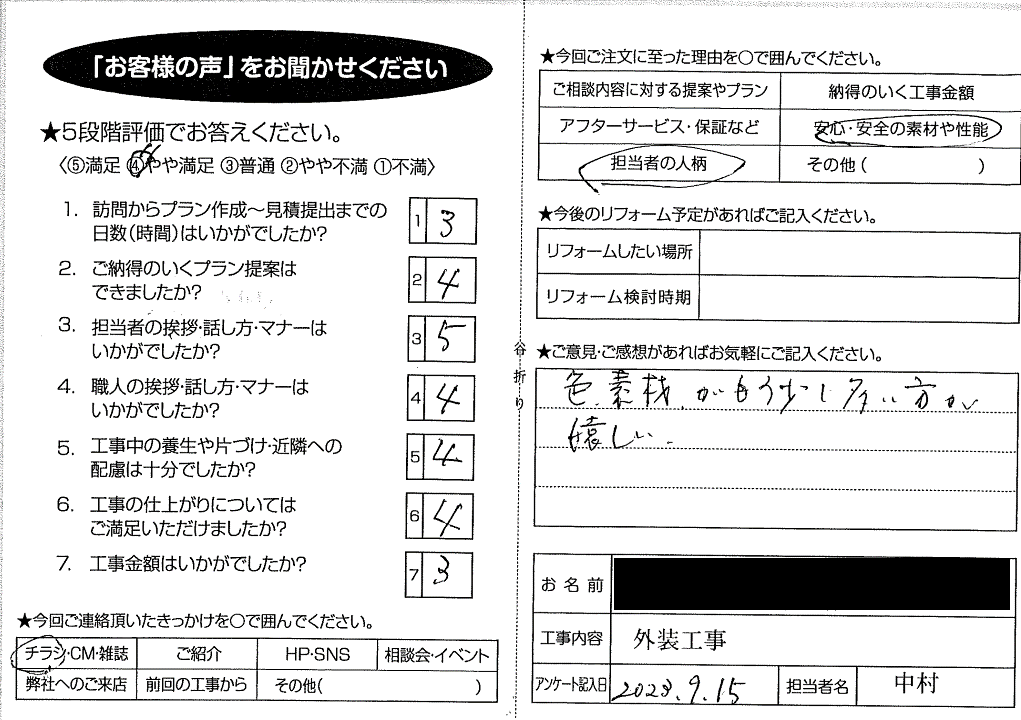 「お客様の声」をお聞かせください
★5段階評価でお答えください。
〈⑤満足 ④やや満足 ③普通 ②やや不満 ①不満〉
1. 訪問からプラン作成～見積提出までの
日数(時間)はいかがでしたか?
1 3
2. ご納得のいくプラン提案は
できましたか?
2 4
3. 担当者の挨拶・話し方・マナーは
いかがでしたか?
3 5
4. 職人の挨拶・話し方・マナーは
いかがでしたか?
4 4
5. 工事中の養生や片づけ・近隣への
配慮は十分でしたか?
5 4
6. 工事の仕上がりについては
ご満足いただけましたか?
6 4
7. 工事金額はいかがでしたか?
7 3
★今回ご連絡頂いたきっかけを〇で囲んでください。
チラシ・CM・雑誌 ご紹介 HP・SNS 相談会・イベント
弊社へのご来店 前回の工事から その他( )
谷折り
★今回ご注文に至った理由を〇で囲んでください。
ご相談内容に対する提案やプラン 納得のいく工事金額
アフターサービス・保証など 安心・安全の素材や性能
担当者の人柄 その他( )
★今後のリフォーム予定があればご記入ください。
リフォームしたい場所
リフォーム検討時期
★ご意見・ご感想があればお気軽にご記入ください。
色、素材、がもう少し多い方が
嬉しい。
お名前
工事内容 外装工事
アンケート記入日 2023.9.15 担当者名 中村